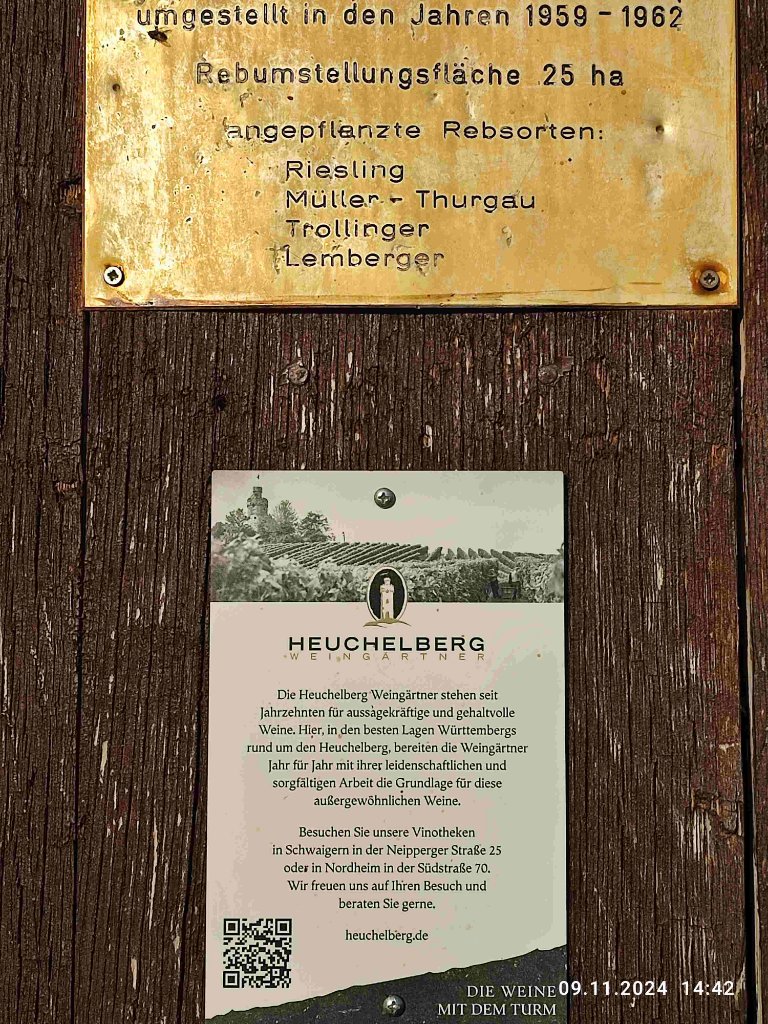 umgestellt in den Jahren 1959 - 1962
Rebumstellungsfläche 25 ha
angepflanzte Rebsorten:
Riesling
Müller - Thurgau
Trollinger
Lemberger
HEUCHELBERG
WEINGÄRTNER
Die Heuchelberg Weingärtner stehen seit
Jahrzehnten für aussagekräftige und gehaltvolle
Weine. Hier, in den besten Lagen Württembergs
rund um den Heuchelberg, bereiten die Weingärtner
Jahr für Jahr mit ihrer leidenschaftlichen und
sorgfältigen Arbeit die Grundlage für diese
außergewöhnlichen Weine.
Besuchen Sie unsere Vinotheken
in Schwaigern in der Neipperger Straße 25
oder in Nordheim in der Südstraße 70.
Wir freuen uns auf Ihren Besuch und
beraten Sie gerne.
heuchelberg.de
DIE WEINE
MIT DEM TURM
09.11.2024 14:42